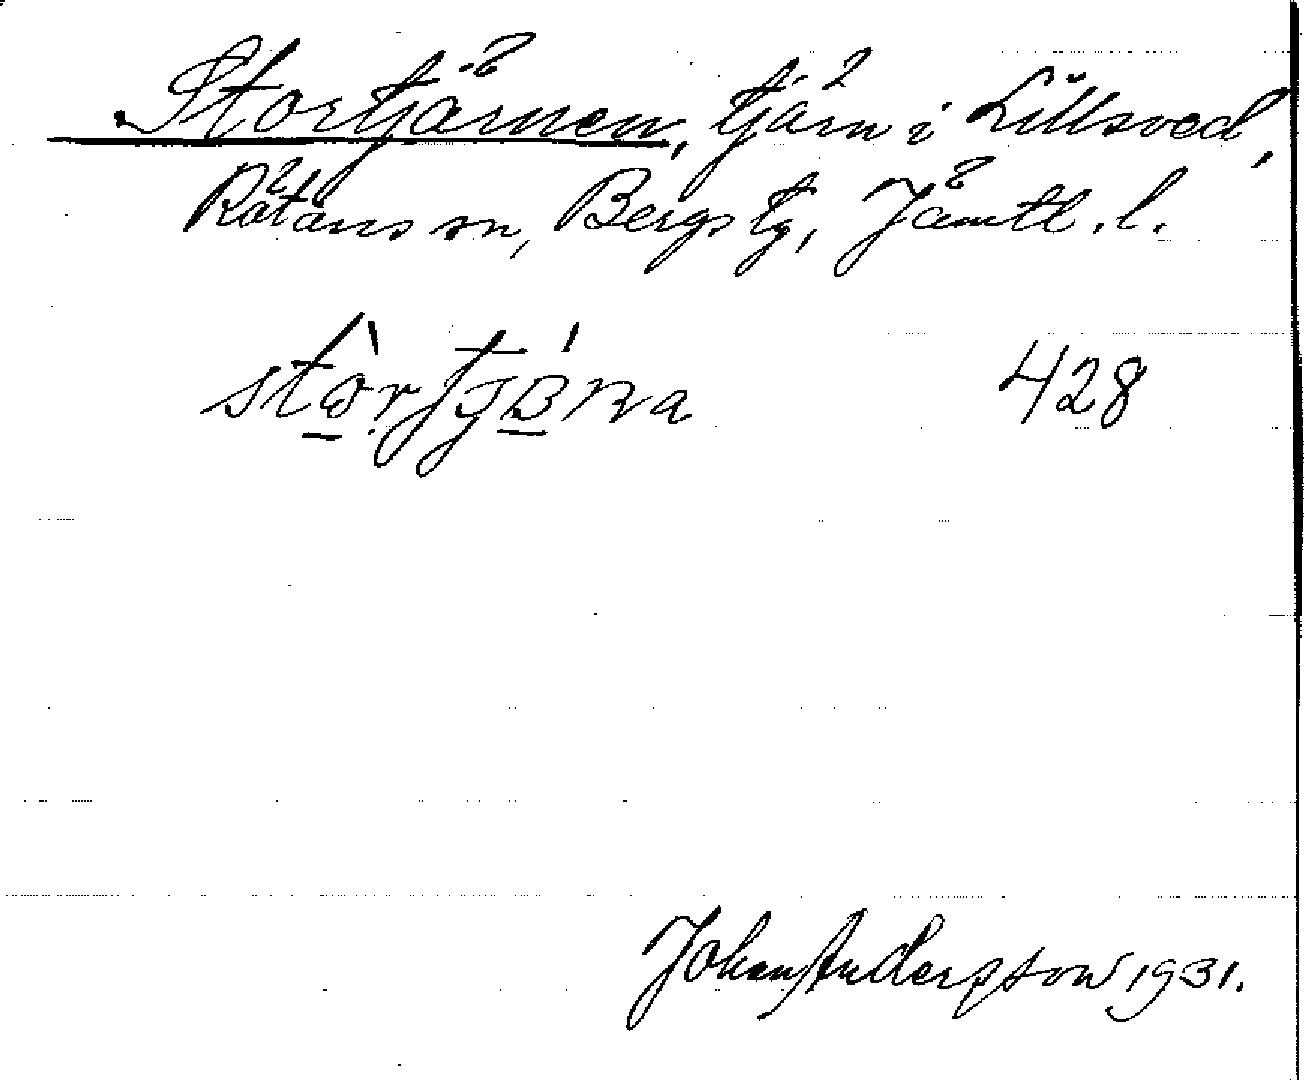 Stortjärnen, tjärn i Lillsved,
Rätans sn, Bergs tg, Jämtl. l.
428
Johan Andersson 1931.